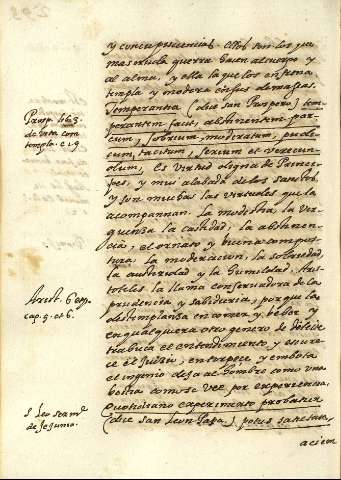 y concupiscencias. Ellos son los que
mas cruda guerra hacen al cuerpo y
al alma, y ella la que los enfrena
templa y modera en sus demasias.
Temperantia (dice san Prospero) tem
perantem facit, abstinentem, par
cum, sobrium, moderatum, pudi
cum, tacitum, serium et verecun
dum, Es virtud digna de Princi
pes, y mui alabada de los santos,
y son muchas las virtudes que la
acompañan. la modestia, la ver
guenza la castidad, la abstinen
cia, el ornato y buena compos
tura, la moderacion, la sobriedad,
la austeridad y la humildad. Aris
toteles la llama conservadora de la
prudencia y sabiduria, porque la
destemplanza en comer y beber y
en qualquiera otro genero de deleite
trabuca el entendimiento y oscure
ce el juicio, entorpece y embota
el ingenio deja al hombre como una
bestia como se vee por experiencia.
Quotidiano experimento probatur
(dice san Leon Papa) potus satietate
aciem
Prosp. lib. 3.
de vita con
templa. c. 19.
Arist. 6 eth.
cap. 5. et 6.
S. Leo serm.
de Jejunio.